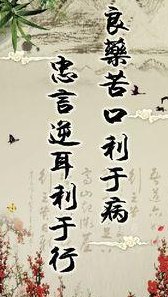 良藥苦口利于病
忠言逆耳利于行